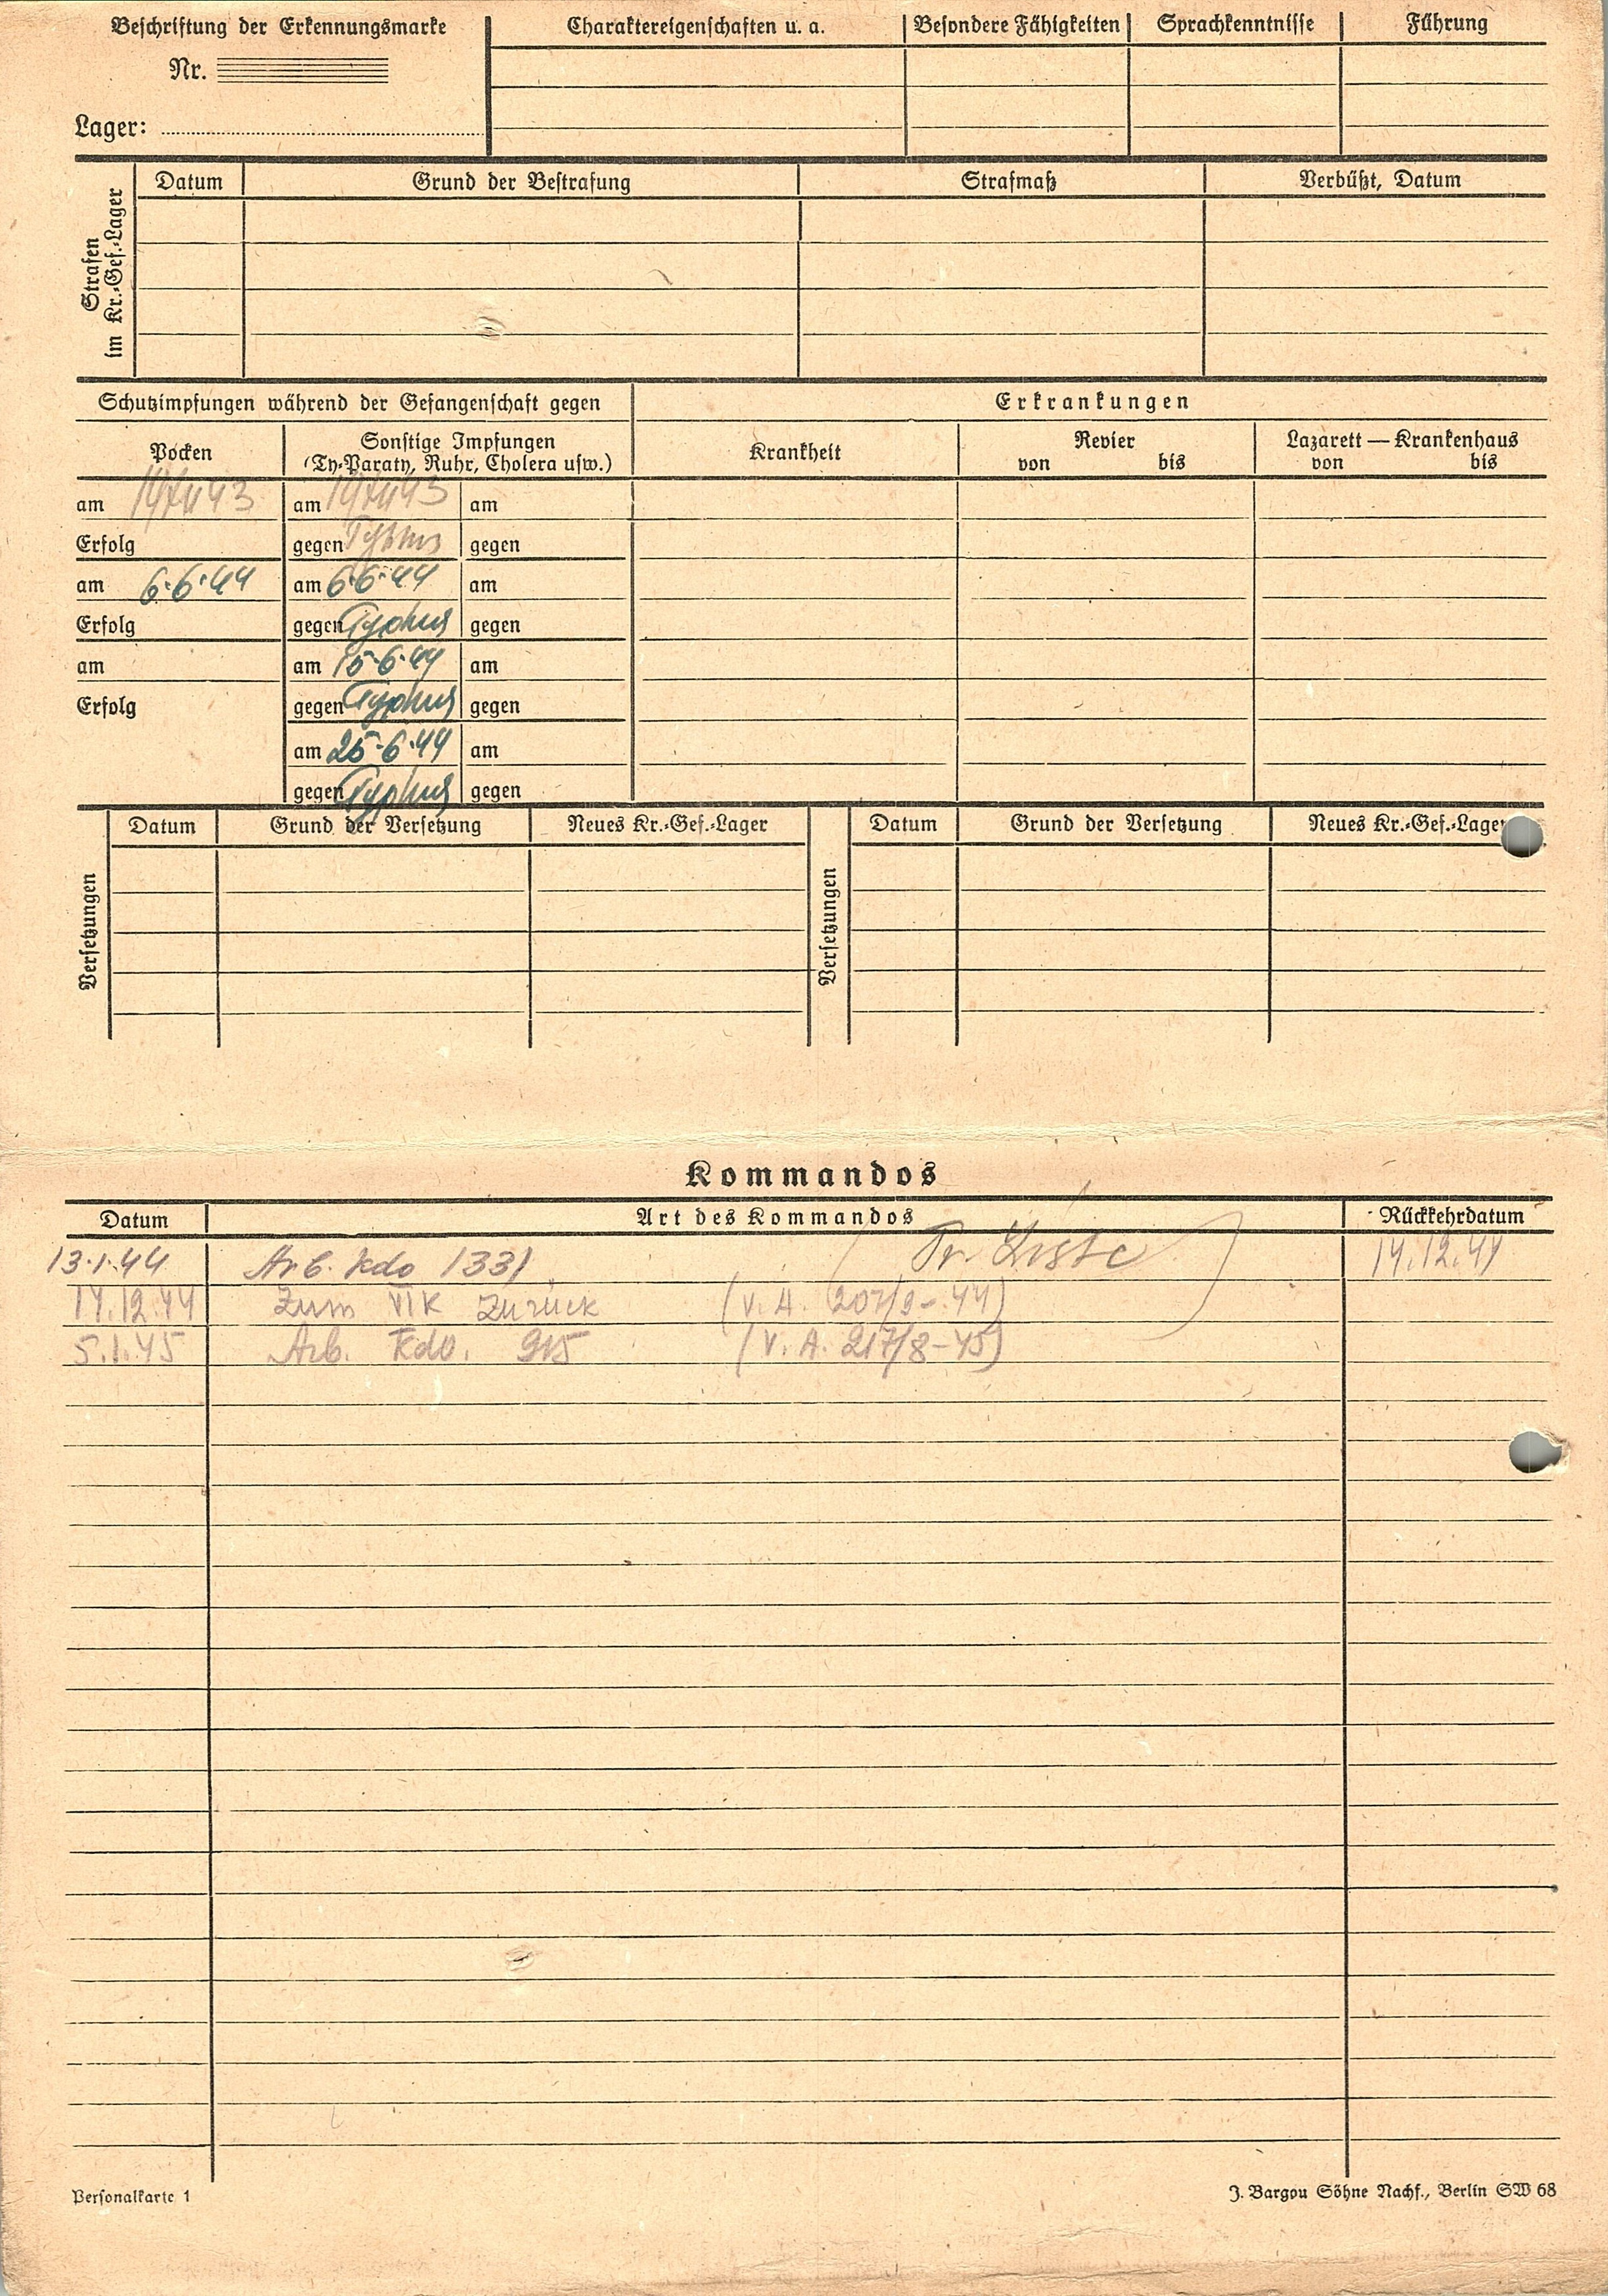 Beschriftung der Erkennungsmarke
Nr.
Lager:
Charaktereigenschaften u. a.
Besondere Fähigkeiten
Sprachkenntnisse
Führung
Strafen
im Kr.-Gef.-Lager
Datum
Grund der Bestrafung
Strafmaß
Verbüßt, Datum
Schutzimpfungen während der Gefangenschaft gegen
Erkrankungen
Pocken
Sonstige Impfungen
(Ty-Paraty, Ruhr, Cholera usw.)
Krankheit
Revier
von bis
Lazarett — Krankenhaus
von bis
am
am
am
Erfolg
gegen Typhus
gegen
am 6.6.44
am 6.6.44
am
Erfolg
gegen Typhus
gegen
am
am 15.6.44
am
Erfolg
gegen Typhus
gegen
am 25.6.44
am
gegen Typhus
gegen
Versetzungen
Datum
Grund der Versetzung
Neues Kr.-Gef.-Lager
Versetzungen
Datum
Grund der Versetzung
Neues Kr.-Gef.-Lager
Kommandos
Datum
Art des Kommandos
Rückkehrdatum
13.1.44 Arb. Kdo 1331 Tr. Liste 14.12.44
14.12.44 Zum VI K Zurück (V. A. 207/9-44)
5.1.45 Arb. Kdo. 915 (V. A. 217/8-45)
Personalkarte 1
J. Bargou Söhne Nachf., Berlin SW 68